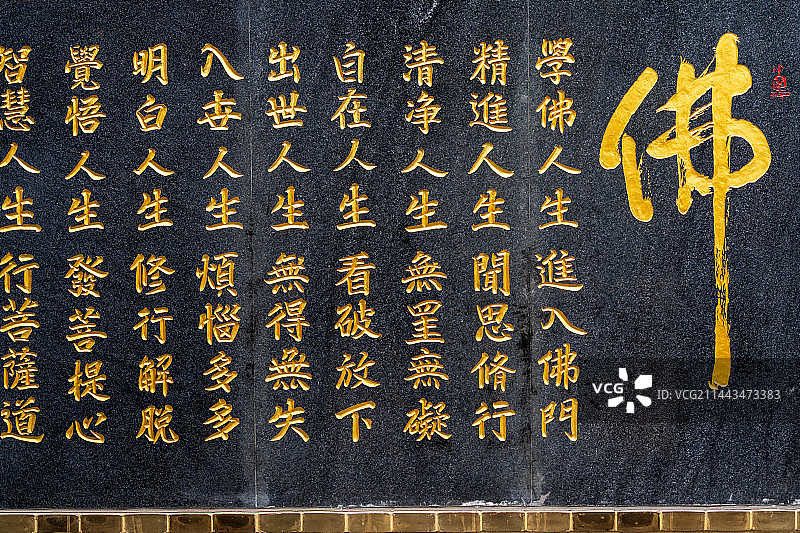 佛
學佛人生 進入佛門
精進人生 聞思脩行
清净人生 無罣無礙
自在人生 看破放下
出世人生 無得無失
入卋人生 煩惱多多
明白人生 修行解脫
覺悟人生 發菩提心
智慧人生 行菩薩道
VCG
VCG211443473383